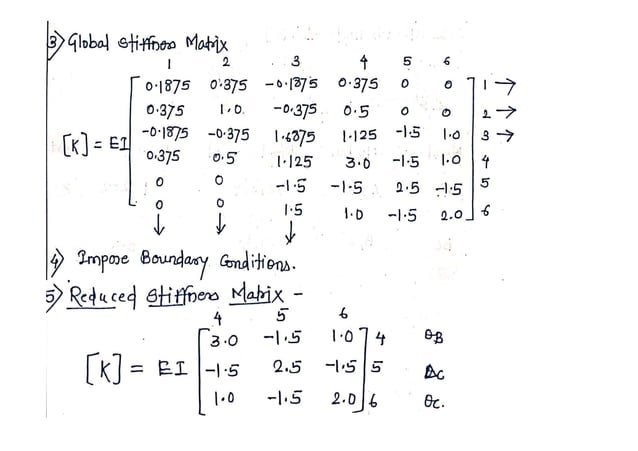 3) Global Stiffness Matrix
1 2 3 4 5 6
0.1875 0.375 -0.1875 0.375 0 0 1 →
0.375 1.0. -0.375 0.5 0 0 2 →
[K] = EI -0.1875 -0.375 1.6875 1.125 -1.5 1.0 3 →
0.375 0.5 1.125 3.0 -1.5 1.0 4
0 0 -1.5 -1.5 2.5 -1.5 5
0 0 1.5 1.0 -1.5 2.0 6
↓ ↓ ↓
4) Impose Boundary Conditions.
5) Reduced Stiffness Matrix -
4 5 6
3.0 -1.5 1.0 4 θB
[K] = EI -1.5 2.5 -1.5 5 Δc
1.0 -1.5 2.0 6 θc.